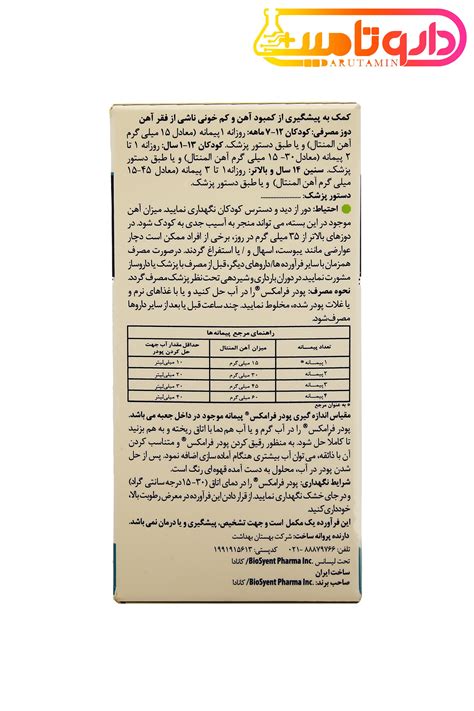 داروتامین
DARUTAMIN
کمک به پیشگیری از کمبود آهن و کم خونی ناشی از فقر آهن
دوز مصرفی: کودکان ۱۲-۷ ماهه: روزانه ۱ پیمانه (معادل ۱۵ میلی گرم
آهن المنتال) و یا طبق دستور پزشک. کودکان ۱۳-۱ سال: روزانه ۱ تا
۲ پیمانه (معادل ۳۰-۱۵ میلی گرم آهن المنتال) و یا طبق دستور
پزشک. سنین ۱۴ سال و بالاتر: روزانه ۱ تا ۳ پیمانه (معادل ۴۵-۱۵
میلی گرم آهن المنتال) و یا طبق دستور پزشک.
دستور پزشک:
احتیاط: دور از دید و دسترس کودکان نگهداری نمایید. میزان آهن
موجود در این بسته، می تواند منجر به آسیب جدی به کودک شود. در
دوزهای بالاتر از ۳۵ میلی گرم در روز، برخی از افراد ممکن است دچار
عوارضی مانند یبوست، اسهال و / یا استفراغ گردند. درصورت مصرف
همزمان با سایر فرآورده ها/داروهای دیگر، قبل از مصرف با پزشک یا داروساز
مشورت نمایید. در دوران بارداری و شیردهی تحت نظر پزشک مصرف گردد.
نحوه مصرف: پودر فرامکس® را در آب حل کنید و یا با غذاهای نرم و
یا غلات پودر شده، مخلوط نمایید. چند ساعت قبل یا بعد از سایر داروها
مصرف شود.
راهنمای مرجع پیمانه ها
تعداد پیمانه میزان آهن المنتال حداقل مقدار آب جهت حل کردن پودر
۱ پیمانه * ۱۵ میلی گرم ۱۰ میلی لیتر
۲ پیمانه ۳۰ میلی گرم ۲۰ میلی لیتر
۳ پیمانه ۴۵ میلی گرم ۳۰ میلی لیتر
۴ پیمانه ۶۰ میلی گرم ۴۰ میلی لیتر
* به عنوان مرجع
مقیاس اندازه گیری پودر فرامکس® پیمانه موجود در داخل جعبه می باشد.
پودر فرامکس® را در آب گرم و یا آب هم دما با اتاق ریخته و به هم بزنید
تا کاملا حل شود. به منظور رقیق کردن پودر فرامکس® و متناسب کردن
آن با ذائقه، می توان آب بیشتری هنگام آماده سازی اضافه نمود. پس از حل
شدن پودر در آب، محلول به دست آمده قهوه ای رنگ است.
شرایط نگهداری: پودر فرامکس® را در دمای اتاق (۳۰-۱۵ درجه سانتی گراد)
و در جای خشک نگهداری نمایید. از قرار دادن این فرآورده در معرض رطوبت بالا،
خودداری کنید.
این فرآورده یک مکمل است و جهت تشخیص، پیشگیری و یا درمان نمی باشد.
دارنده پروانه ساخت: شرکت بهستان بهداشت
تلفن: ۸۸۸۷۹۷۶۶-۰۲۱ کدپستی: ۱۹۹۱۹۱۵۶۱۳
تحت لیسانس .BioSyent Pharma Inc/ کانادا
ساخت ایران
صاحب برند: .BioSyent Pharma Inc/ کانادا